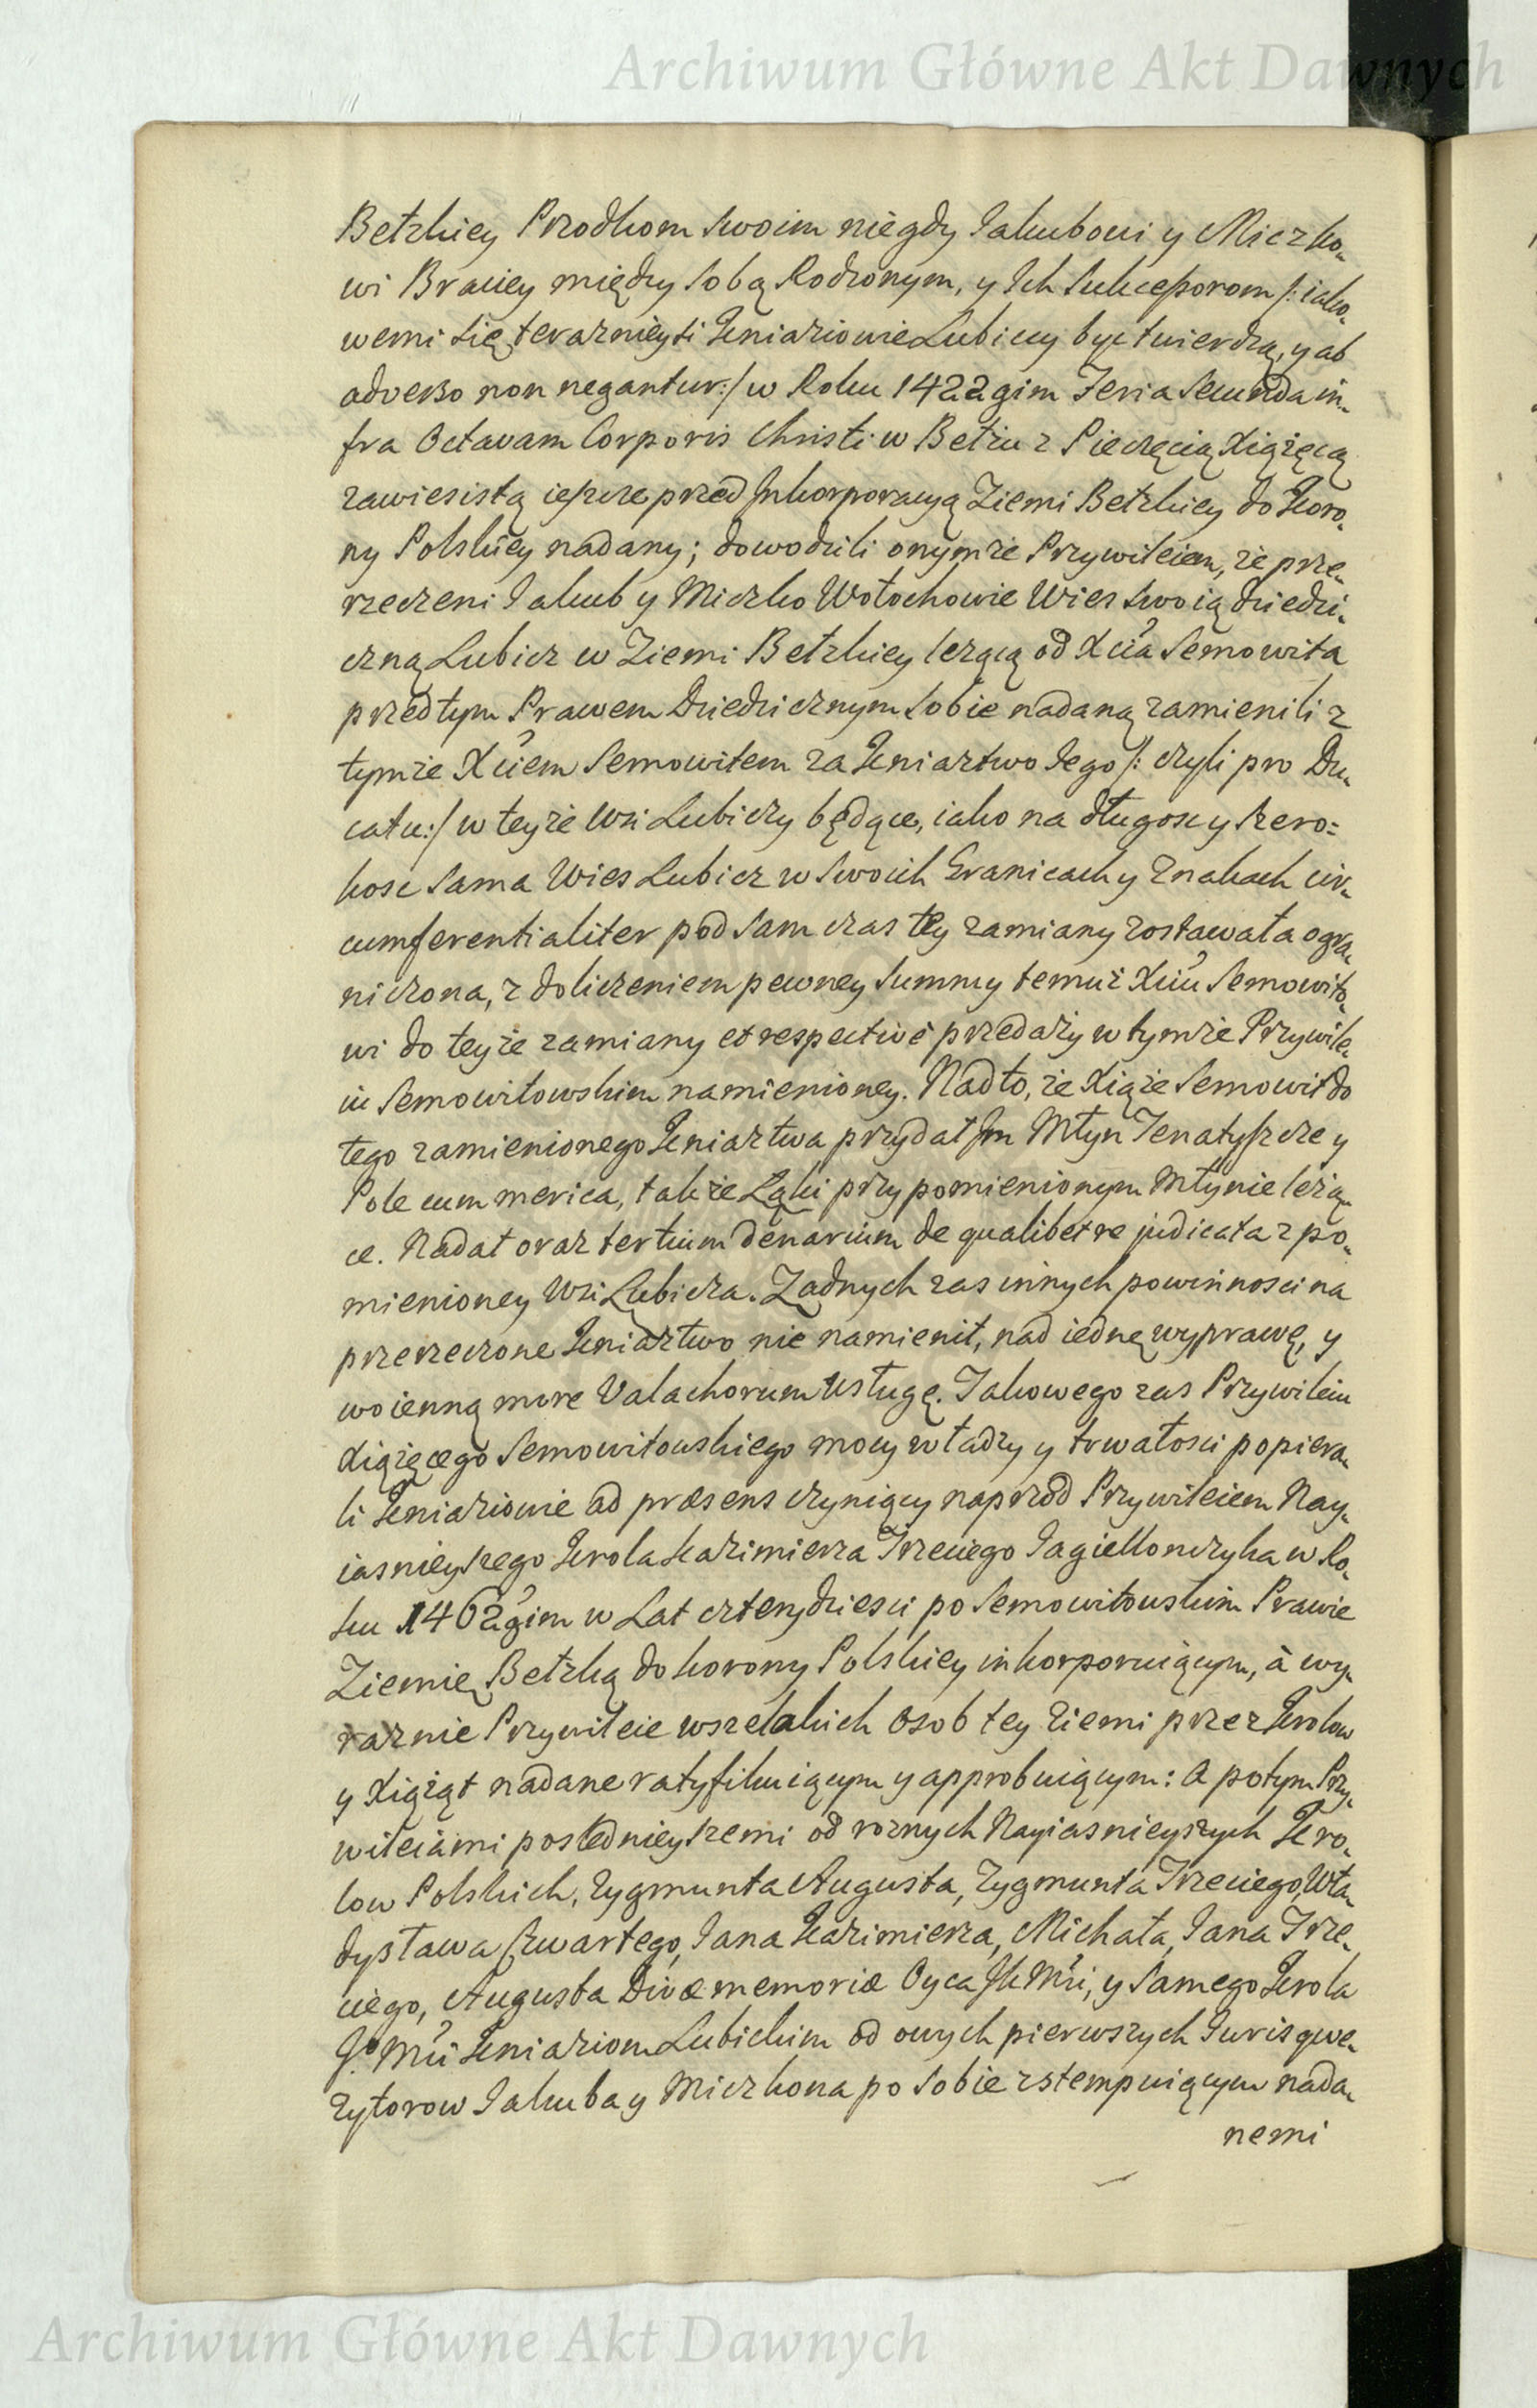 Archiwum Główne Akt Dawnych
Bełzkiey Przodkom swoim niegdy Jakubowi y Miczko-
wi Braciey między sobą Rodzonym, y Ich Sukcessorom /: iako-
wemi się terazniejsi Kniaziowie Lubiccy być twierdzą, y ab
adverso non negantur :/ w Roku 1422gim Feria Secunda in-
fra Octavam Corporis Christi w Bełziu z Pieczęcią Xiążęcą
zawiesistą ieszcze przed Inkorporacyą Ziemi Bełzkiey do Koro-
ny Polskiey nadany; dowodzili onymże Przywileiem, że prze-
rzeczeni Jakub y Miczko Wołochowie Wies swoią dziedzi-
czną Lubicz w Ziemi Bełzkiey leżącą od Xcia Semowita
przedtym Prawem Dziedzicznym sobie nadaną zamienili z
tymże Xciem Semowitem za Kniaztwo Jego /: czyli pro Du-
catu :/ w teyże Wsi Lubiczy będące, iako na długosc y szero=
kosc sama Wies Lubicz w swoich Granicach y Znakach cir-
cumferentialiter pod sam czas tey zamiany zostawała ogra-
niczona, z doliczeniem pewney Summy temuż Xciu Semowito-
wi do teyże zamiany et respective przedaży w tymże Przywile-
iu Semowitowskim namienioney. Nadto, że Xiąże Semowit do
tego zamienionego Kniaztwa przydał Im Młyn Tenatyszcze y
Pole cum merica, także Łąki przy pomienionym Młynie leżą-
ce. Nadał oraz tertium denarium de qualibet re judicata z po-
mienioney Wsi Lubicza. Żadnych zas innych powinnosci na
przerzeczone Kniaztwo nie namienił, nad iednę wyprawę, y
woienną more Valachorum usługę. Jakowego zas Przywileiu
Xiążęcego Semowitowskiego mocy władzy y trwałosci popiera-
li Kniaziowie ad præsens czyniący naprzod Przywileiem Nay-
iasnieyszego Krola Kazimierza Trzeciego Jagiellonczyka w Ro-
ku 1462gim w Lat czterydziesci po Semowitowskim Prawie
Ziemię Bełzką do Korony Polskiey inkorporuiącym, à wy-
raznie Przywileie wszelakich Osob tey Ziemi przez Krolow
y Xiążąt nadane ratyfikuiącym y approbuiącym: A potym Przy-
wileiami poslednieyszemi od roznych Nayiasnieyszych Kro-
low Polskich, Zygmunta Augusta, Zygmunta Trzeciego, Wła-
dysława Czwartego, Jana Kazimierza, Michała, Jana Trze-
ciego, Augusta Divæ memoriæ Oyca JK Mci, y samego Krola
Jo Mci Kniaziom Lubickim od owych pierwszych Juris qwe-
zytorow Jakuba y Miczkona po sobie zstempuiącym nada-
nemi
Archiwum Główne Akt Dawnych